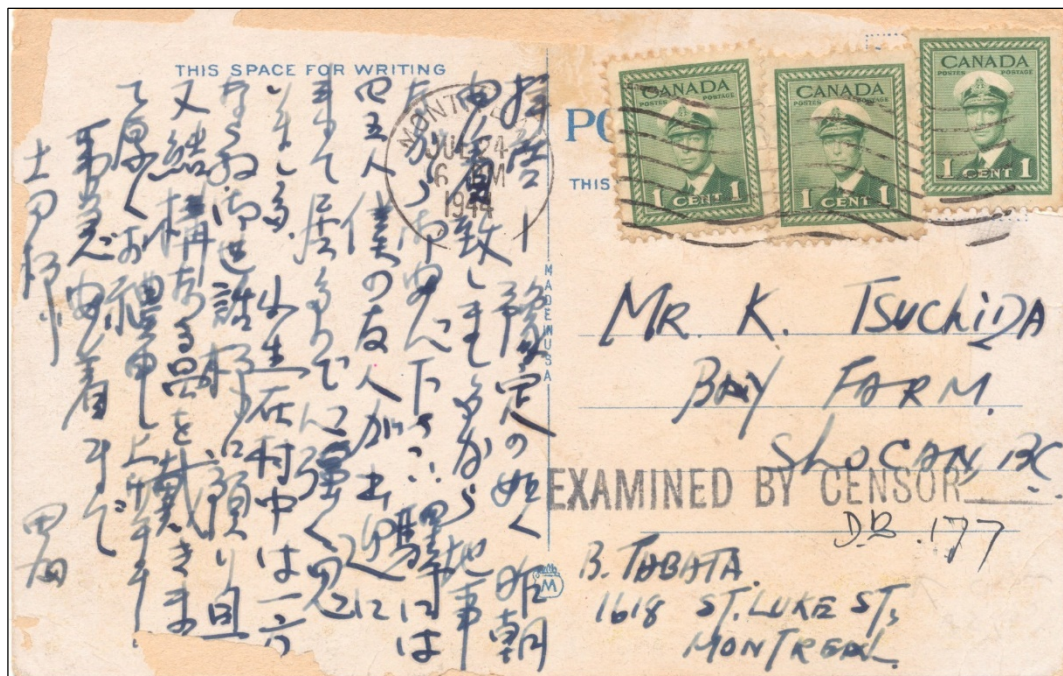 THIS SPACE FOR WRITING
拝啓 予定の如く昨朝
着致しましたから他事
ながら御安心下さい 驛には
四五人僕の友人が出迎に
来て居たので心強く思
いました 小生在村中は一方
ならぬ御世話に預り且
又結構なる品を戴きま
て厚くお禮申し上げます
安着まで
土田様 田畑
MONTRE
JUL 24
6 PM
1944
PO
THIS
MADE IN USA
M
CANADA
POSTES POSTAGE
1 CENT 1
CANADA
POSTES POSTAGE
1 CENT 1
CANADA
POSTES POSTAGE
1 CENT 1
MR. K. TSUCHIDA
BAY FARM.
SLOCAN, BC
EXAMINED BY CENSOR
DB. 177
B. TABATA.
1618 ST. LUKE ST,
MONTREAL.